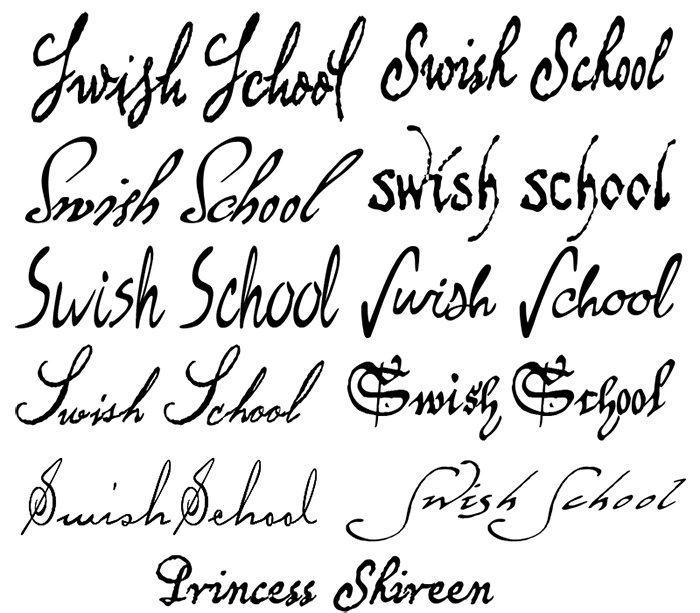 Swish School Swish School
Swish School swish school
Swish School Swish School
Swish School Swish School
Swish School Swish School
Princess Shireen